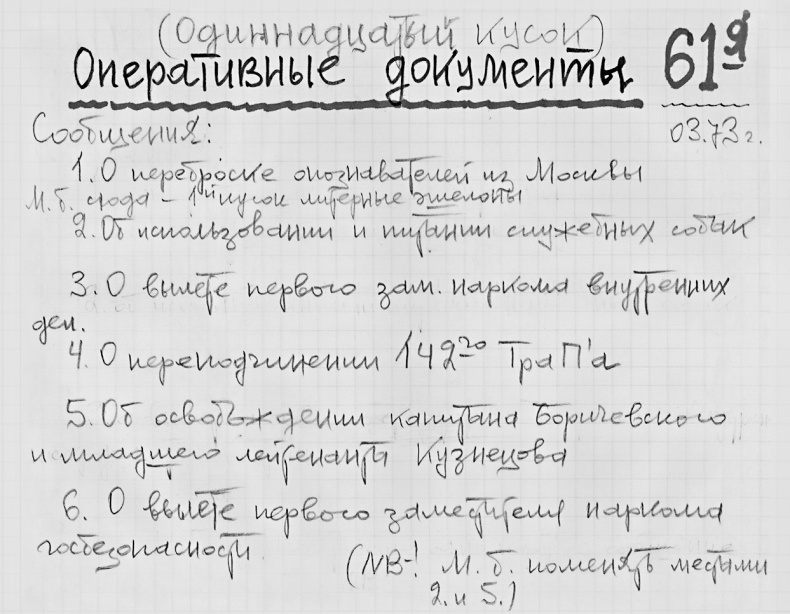 (Одиннадцатый кусок)
Оперативные документы 61я
Сообщения: 03.73 г.
1. О переброске опознавателей из Москвы
М.б. сюда – 1й кусок литерные эшелоны
2. Об использовании и питании служебных собак
3. О вылете первого зам. наркома внутренних
дел.
4. О переподчинении 142го ТраП'а
5. Об освобождении капитана Боричевского
и младшего лейтенанта Кузнецова
6. О вылете первого заместителя наркома
госбезопасности.
(NB-! М.б. поменять местами
2. и 5.)